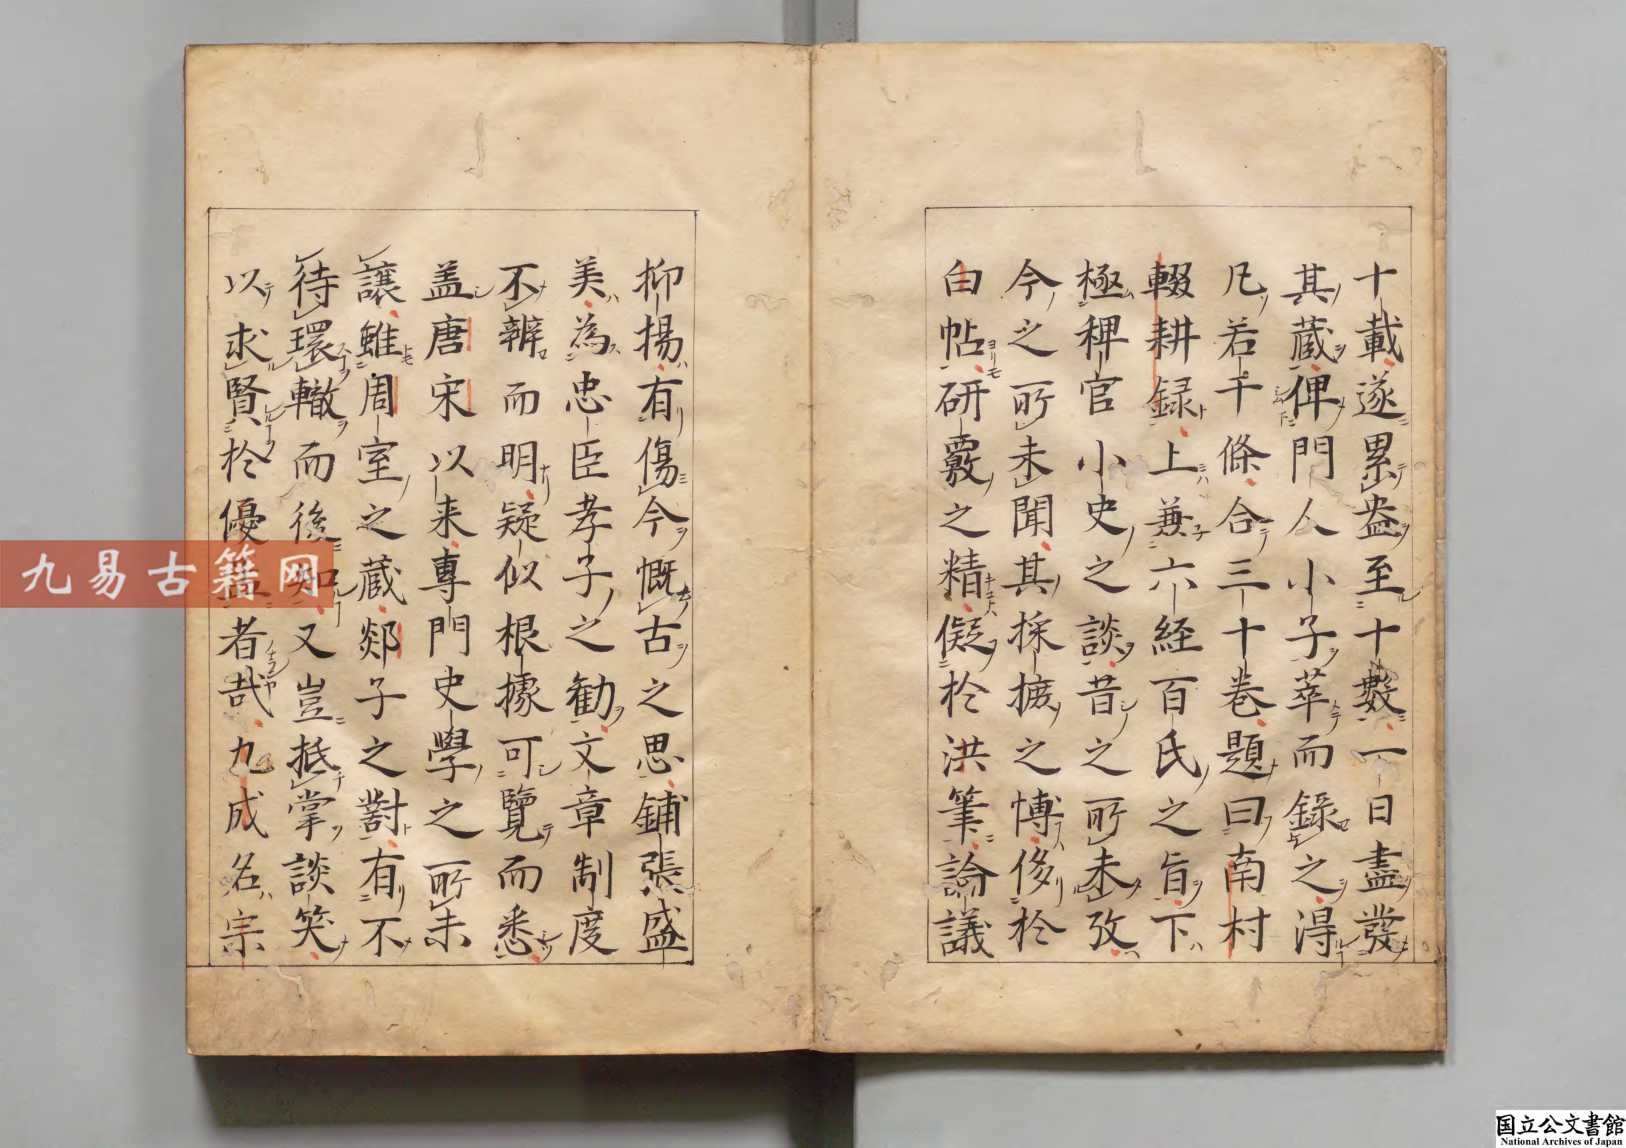 十載遂累盎至十數一日盡發
其蔵俾門人小子萃而錄之淂
凡若干條合三十卷題曰南村
輟耕録上兼六経百氏之旨下
極稗官小史之談昔之所未攷
今之所未聞其採摭之愽侈於
白帖研覈之精儗於洪筆論議
抑揚有傷今慨古之思鋪張盛
美為忠臣孝子之勸文章制度
不辨而明疑似根據可覽而悉
盖唐宋以来專門史學之所未
讓雖周室之蔵郯子之對有不
待環轍而後知又豈抵掌談笑
以求賢於優孟者哉九成名宗
九易古籍网
国立公文書館
National Archives of Japan